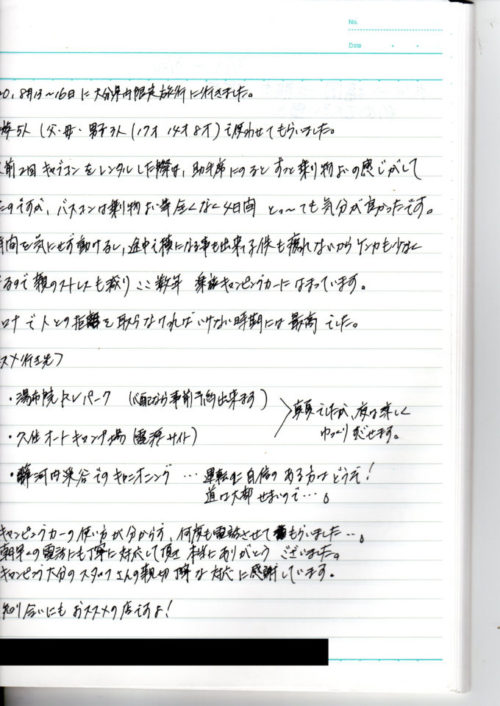 No.
Date
20.8月13〜16日に大分県内限定旅行に行きました。
5人(父・母・男子3人(17才 14才 8才)で使わせてもらいました。
前2回キャブコンをレンタルした際は、助手席にのるとずっと乗り物酔の感じがして
たのですが、バスコンは乗り物酔い等全くなく4日間 と〜っても気分が良かったです。
時間を気にせず動けるし、途中で横になる事も出来、子供も疲れないからケンカも少なく
るので親のストレスも減りここ数年 家族キャンピングカーにはまっています。
ロナで人との距離を取らなければいけない時期には最高でした。
スメ行き先♪
・湯布院 パーク (心配なら事前予約出来ます)
・久住オートキャンプ場(電源サイト)
でしたが、夜は涼しく
ゆっくりすごせます。
・ でのキャニオニング … 運転に自信のある方はどうぞ!
道は大部せまいので…。
キャンピングカーの使い方が分からず、何度も電話させてもらいました…。
朝早くの電話にも丁寧に対応して頂き 本当にありがとうございました。
キャンピング大分のスタッフさんの親切丁寧な対応に感謝しています。
知り合いにもおススメの店ですよ!